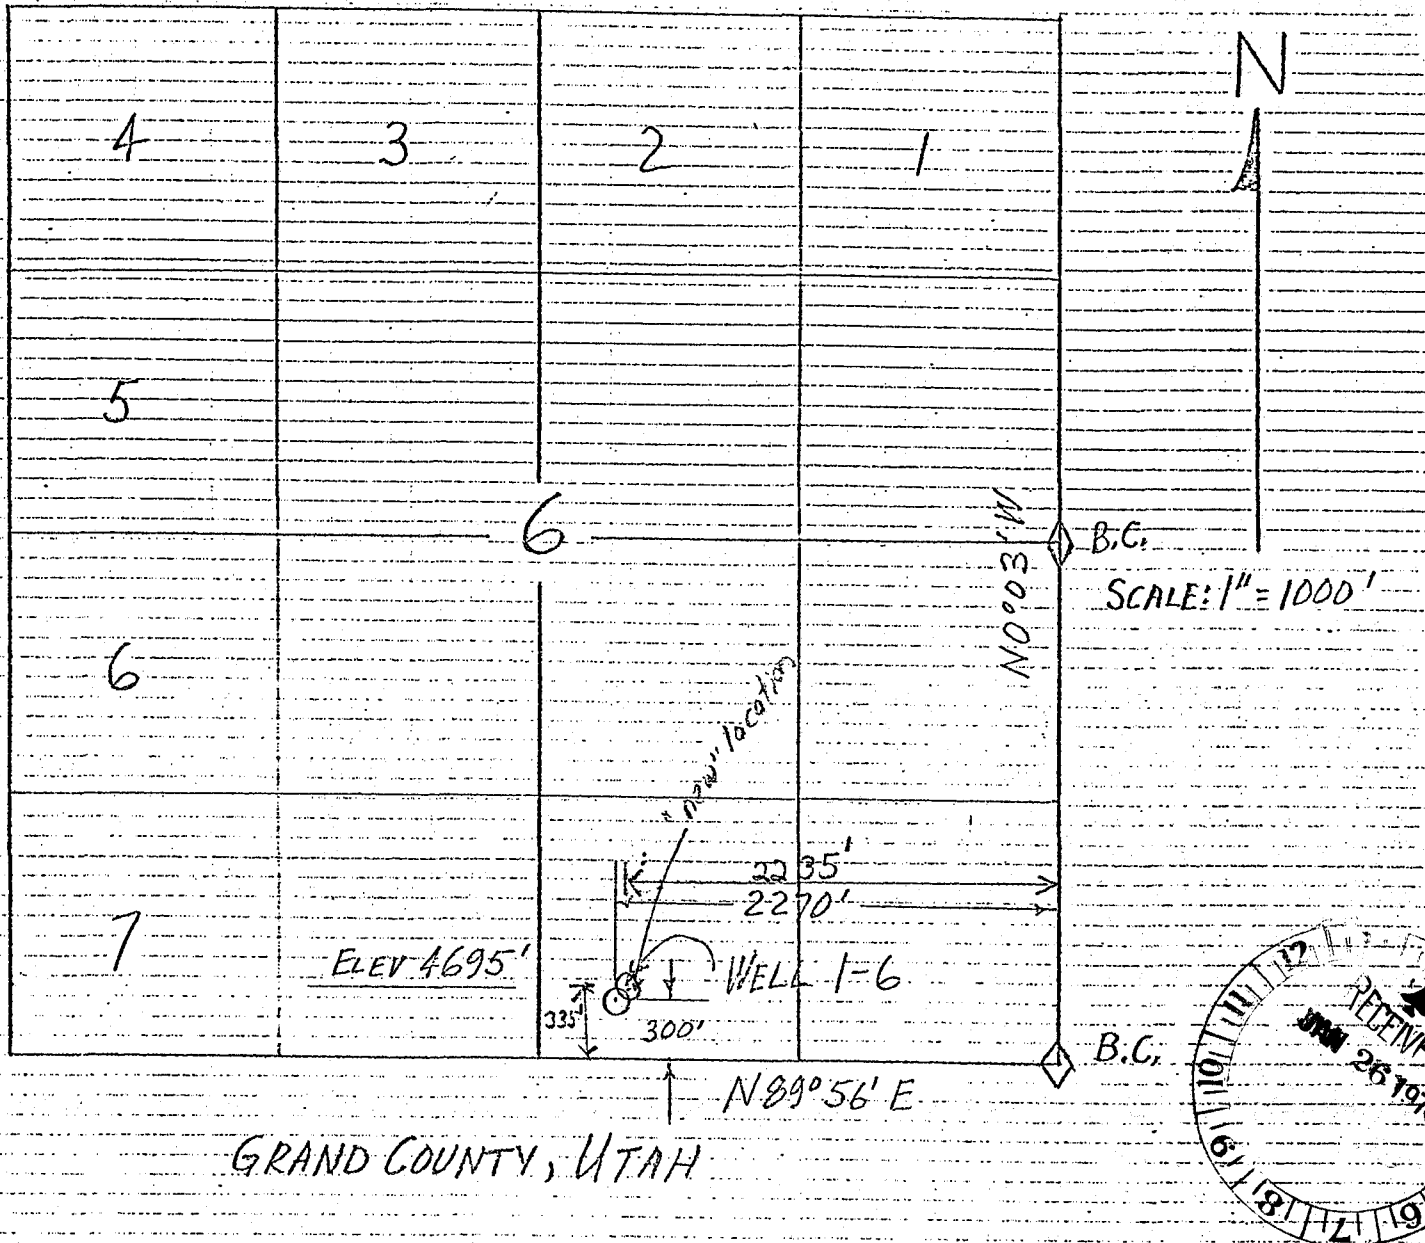 N
4 3 2 1
5
6
B.C.
N0°03'W
SCALE: 1" = 1000'
6
"new" location
2235'
2270'
7
ELEV 4695'
WELL 1-6
335'
300'
B.C.
N89°56'E
GRAND COUNTY, UTAH
12
11
10
9
8
7
6
JAN 26